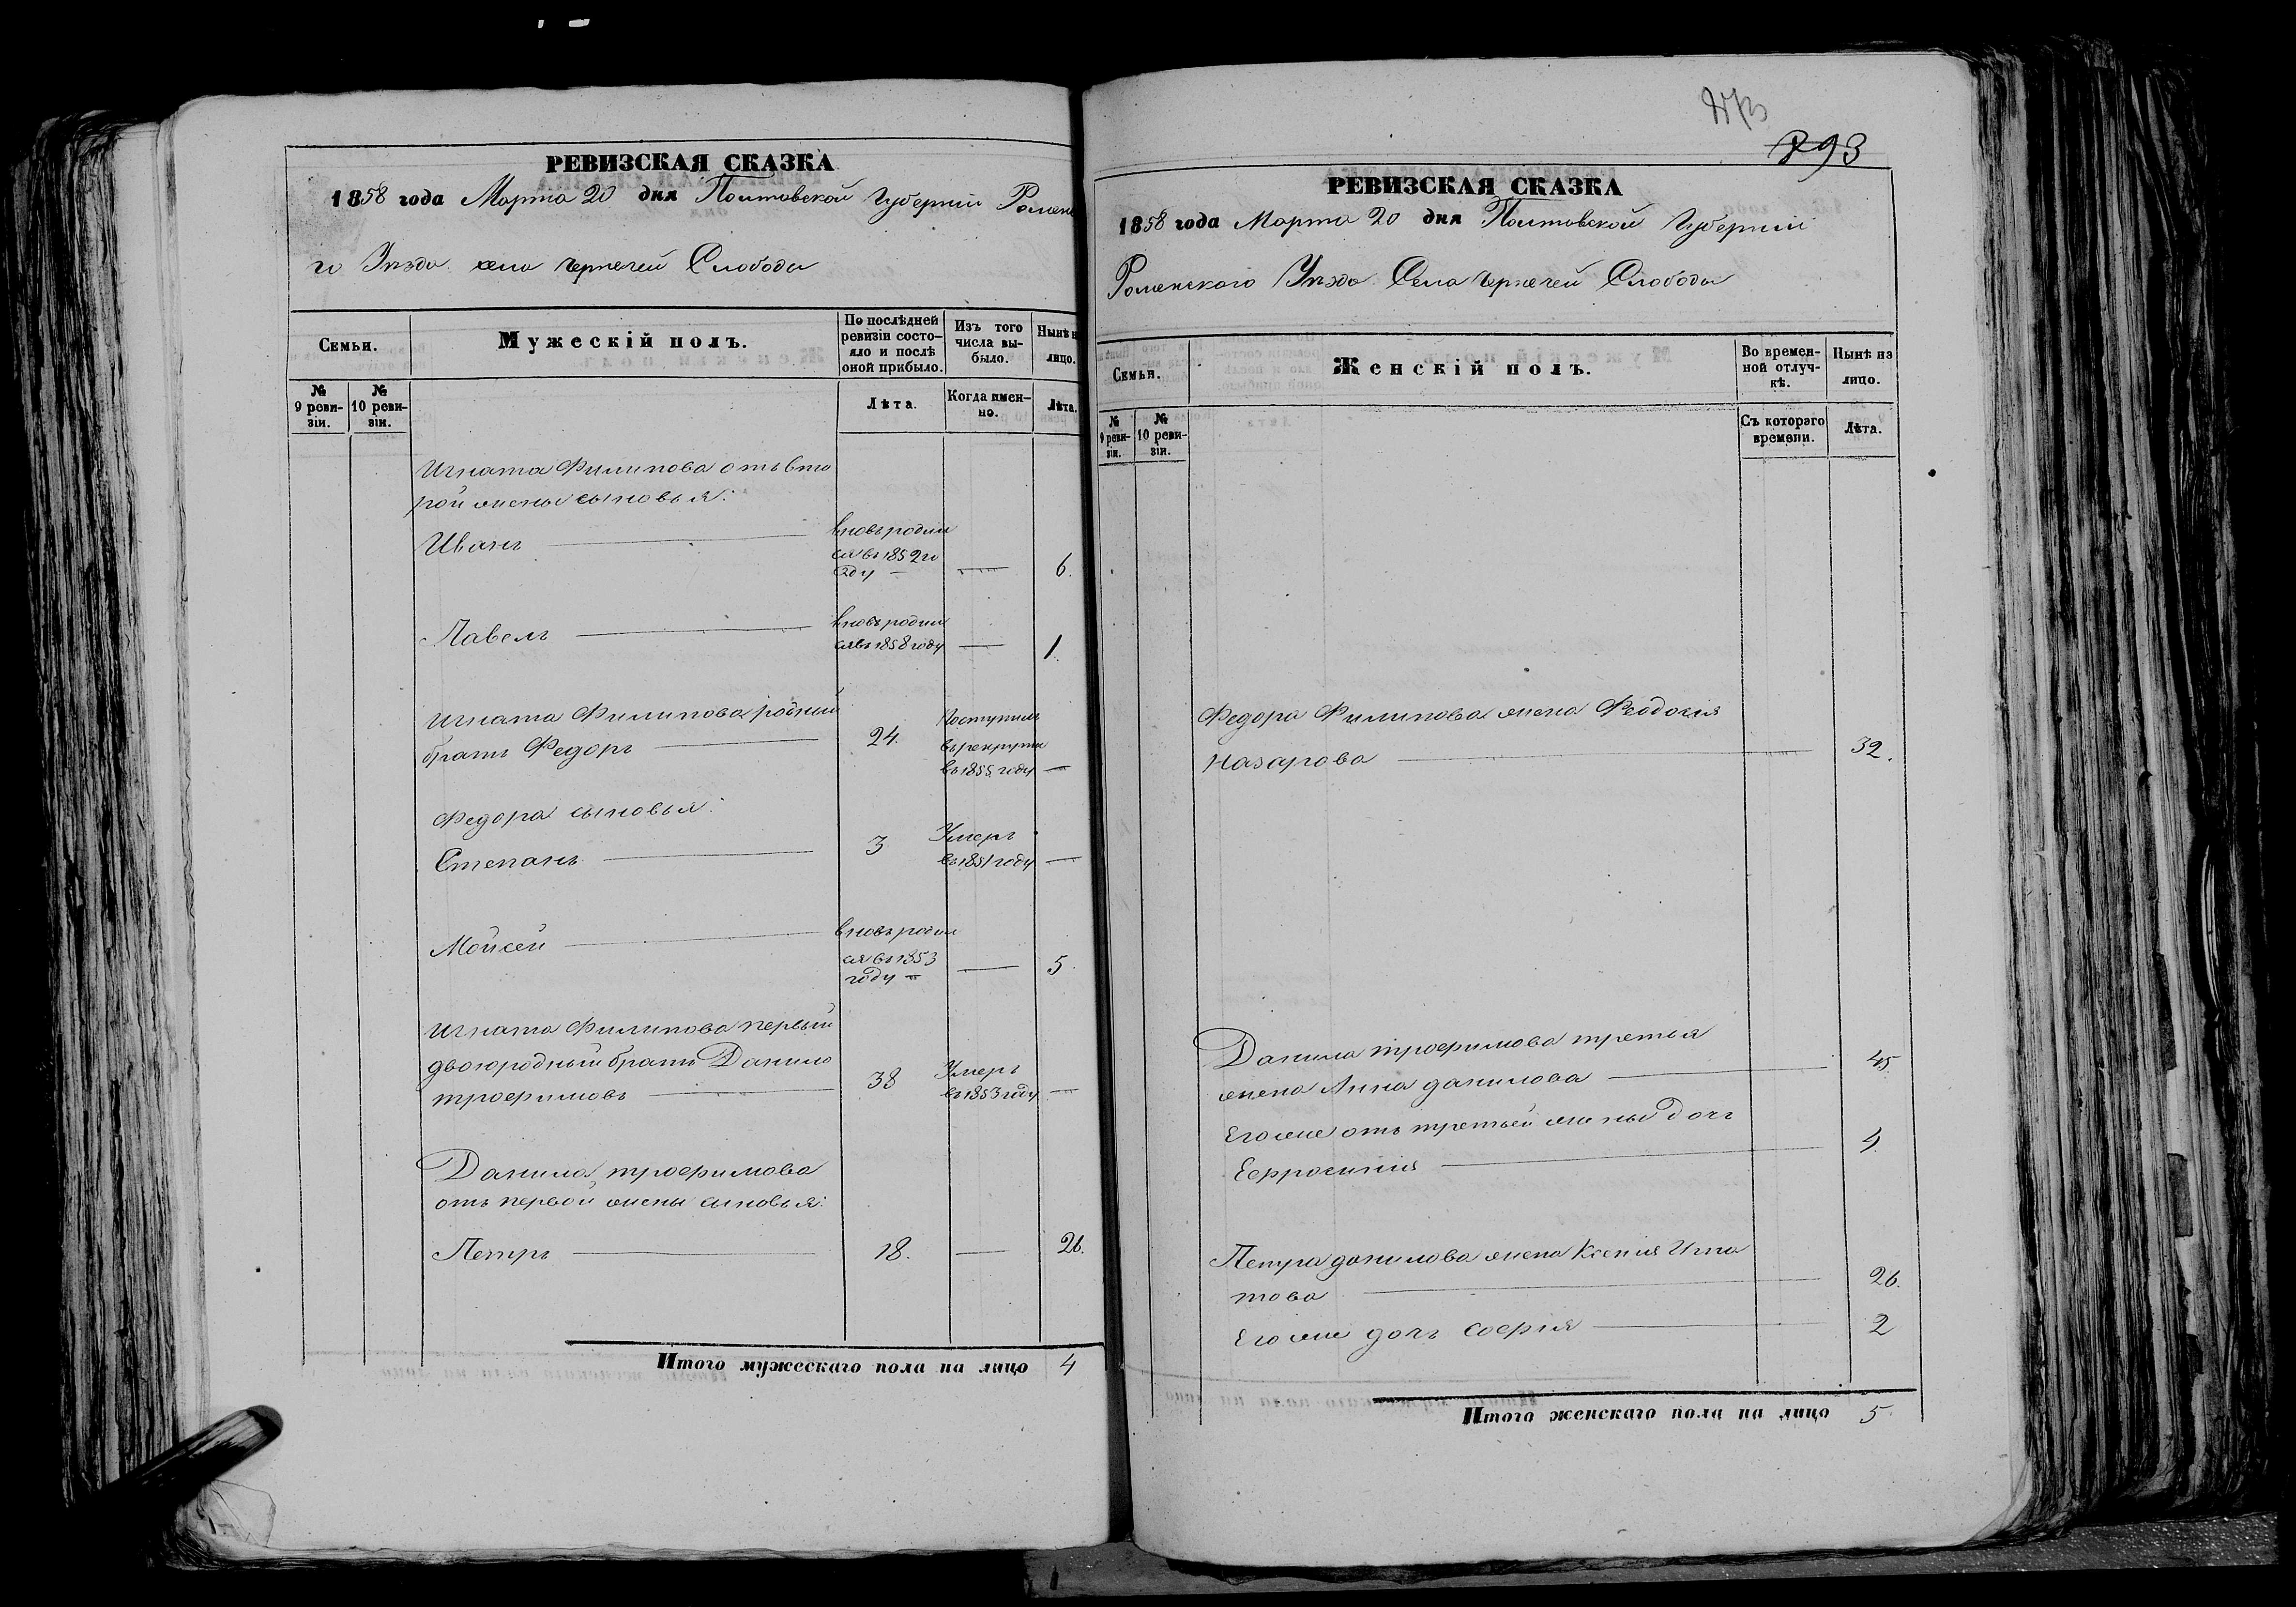 РЕВИЗСКАЯ СКАЗКА
1858 года Марта 20 дня Полтавской Губернiи Роменска
го Уѣзда села Чернечей Слободы
Семьи.
Мужескiй полъ.
По послѣдней ревизiи состо-
яло и послѣ оной прибыло.
Изъ того числа вы-
было.
Нынѣ н
лицо.
№ 9 реви-
зiи.
№ 10 реви-
зiи.
Лѣта.
Когда имен-
но.
Лѣта.
Игната Филипова отъ вто
рой жены сыновья:
Иванъ
вновь родил
ся въ 1852 го
ду
6.
Павелъ
вновь родил
ся въ 1858 году
1.
Игната Филипова родный
братъ Федоръ
24.
Поступилъ
въ рекруты
въ 1855 году
Федора сыновья:
Степанъ
3
Умеръ
въ 1851 году
Мойсей
вновь родил
ся въ 1853
году
5.
Игната Филипова первый
двоюродный братъ Данило
трофимовъ
38
Умеръ
въ 1853 году
Данила трофимова
отъ первой жены сыновья:
Петръ
18.
26.
Итого мужескаго пола на лицо 4
893
РЕВИЗСКАЯ СКАЗКА
1858 года Марта 20 дня Полтавской Губернiи
Роменскаго Уѣзда Села Чернечей Слободы
Семьи.
Женскiй полъ.
Во времен-
ной отлуч-
кѣ.
Нынѣ на
лицо.
№ 9 реви-
зiи.
№ 10 реви-
зiи.
Съ котораго
времени.
Лѣта.
Федора Филипова жена Феодосiя
Назарова
32.
Данила трофимова третья
жена Анна данилова
45
Его же отъ третьей жены дочь
Ефросинiя
4
Петра данилова жена Ксенiя Игна
това
26.
Его же дочь софiя
2
Итого женскаго пола на лицо 5.